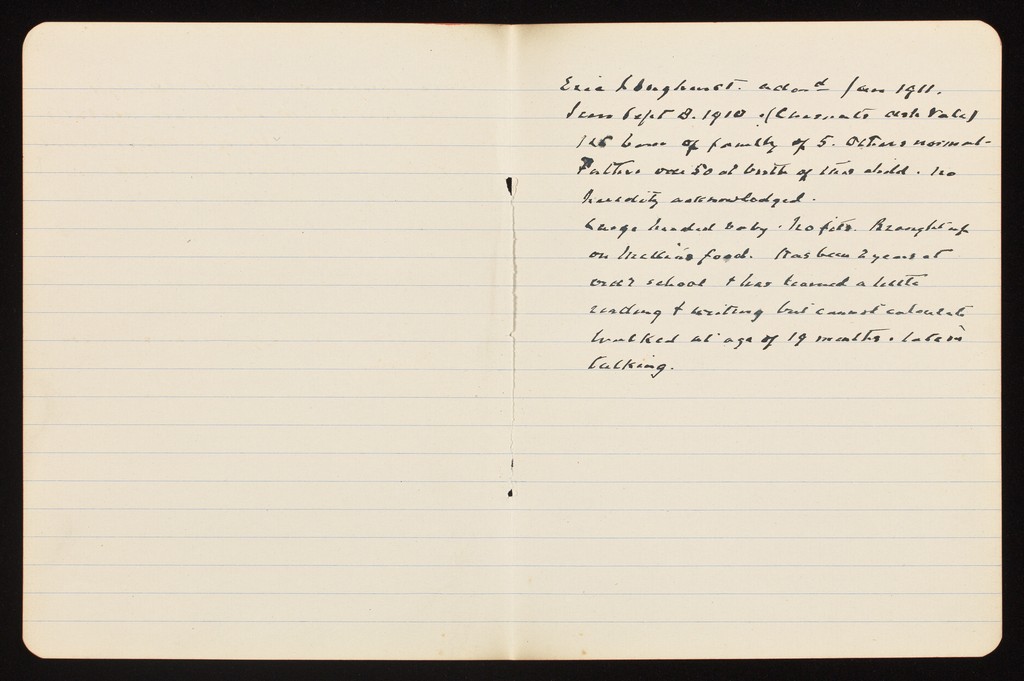 Eric Longhurst. admd Jan 1911.
Seen Sept 8. 1910. (
1st born of family of 5. Others normal-
Father over 50 at birth of this child. No
heredity acknowledged.
Large headed baby. No fits. Brought up
on Mellin's food. Has been 2 years at
ord school + has learned a little
reading + writing but cannot calculate
Walked at age of 19 months. late in
talking.